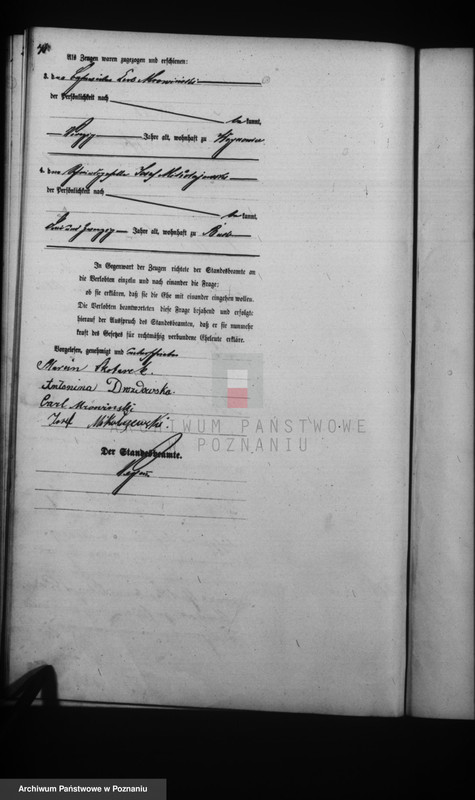 Als Zeugen waren zugezogen und erschienen:
3. der Carl Mrowinski
der Persönlichkeit nach
be kannt,
vierzig Jahre alt, wohnhaft zu
4. der Josef Mikolajewski
der Persönlichkeit nach
be kannt,
zwanzig Jahre alt, wohnhaft zu Buk
In Gegenwart der Zeugen richtete der Standesbeamte an
die Verlobten einzeln und nach einander die Frage:
ob sie erklären, daß sie die Ehe mit einander eingehen wollen.
Die Verlobten beantworteten diese Frage bejahend und erfolgte
hierauf der Ausspruch des Standesbeamten, daß er sie nunmehr
kraft des Gesetzes für rechtmäßig verbundene Eheleute erkläre.
Vorgelesen, genehmigt und unterschrieben
Marcin Skotarek
Antonina Drozdowska
Carl Mrowinski
Josef Mikolajewski
ARCHIWUM PAŃSTWOWE
POZNANIU
Der Standesbeamte.
Archiwum Państwowe w Poznaniu